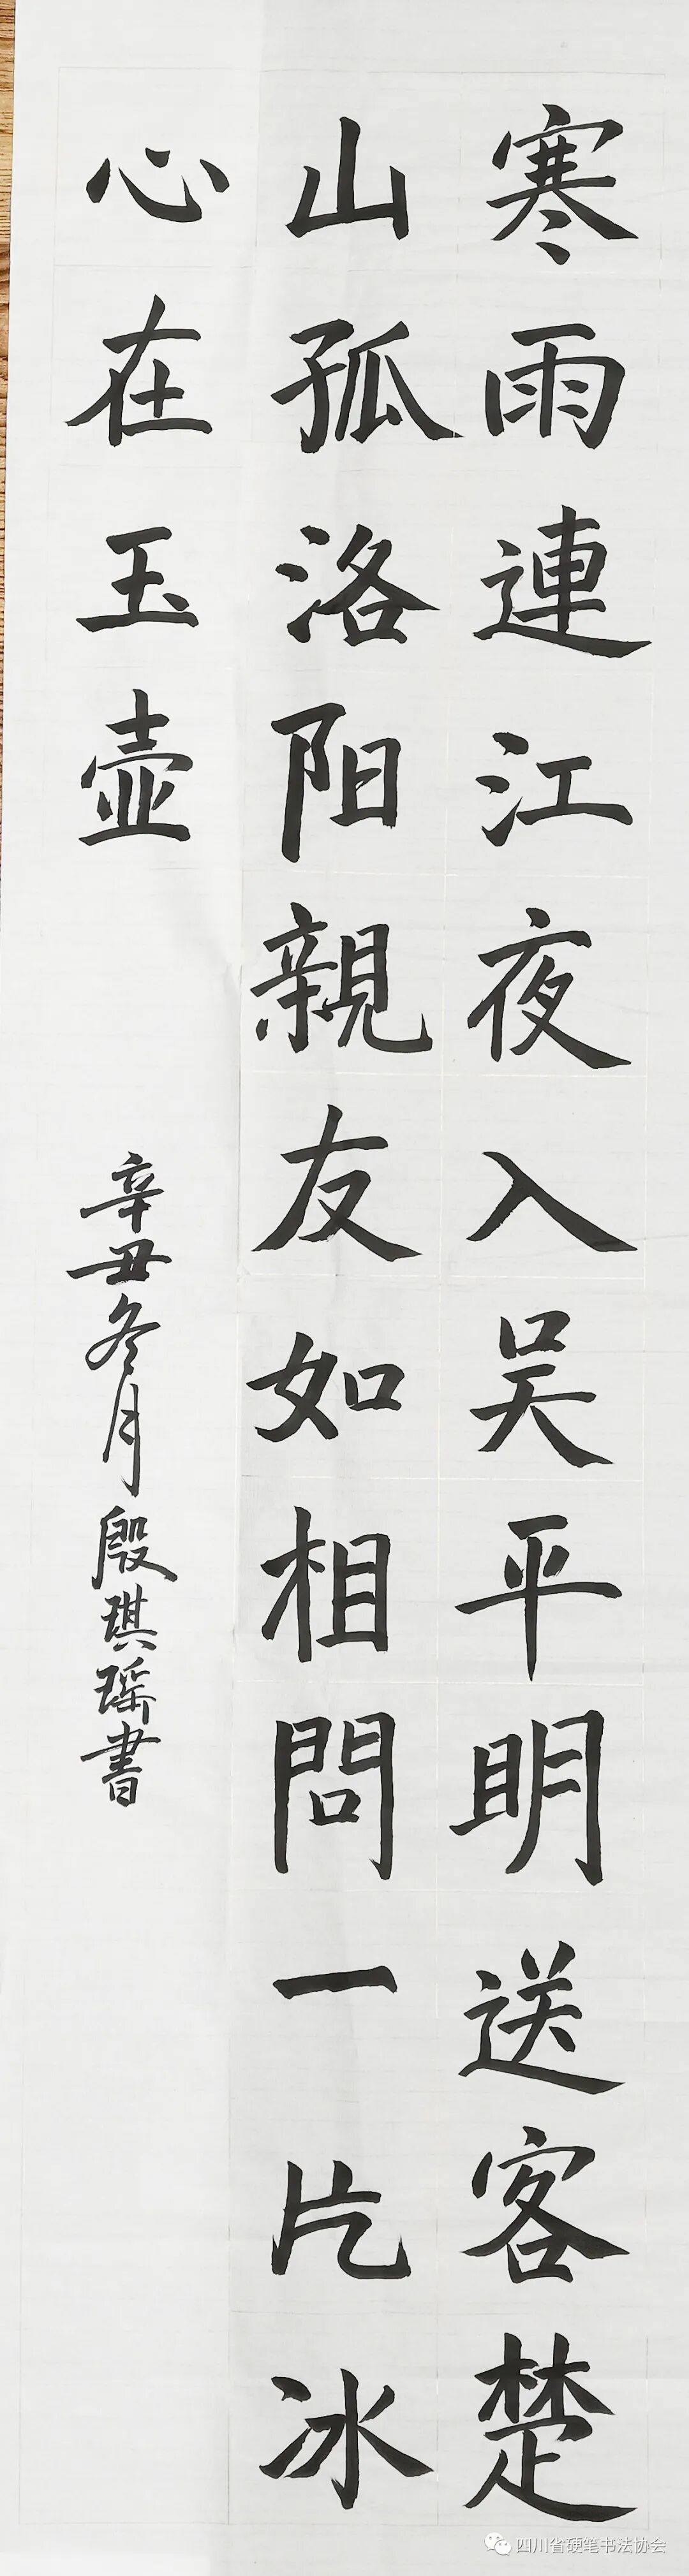 寒雨連江夜入吴平明送客楚
山孤洛阳親友如相問一片冰
心在玉壶
辛丑冬月殷琪瑶書
四川省硬笔书法协会